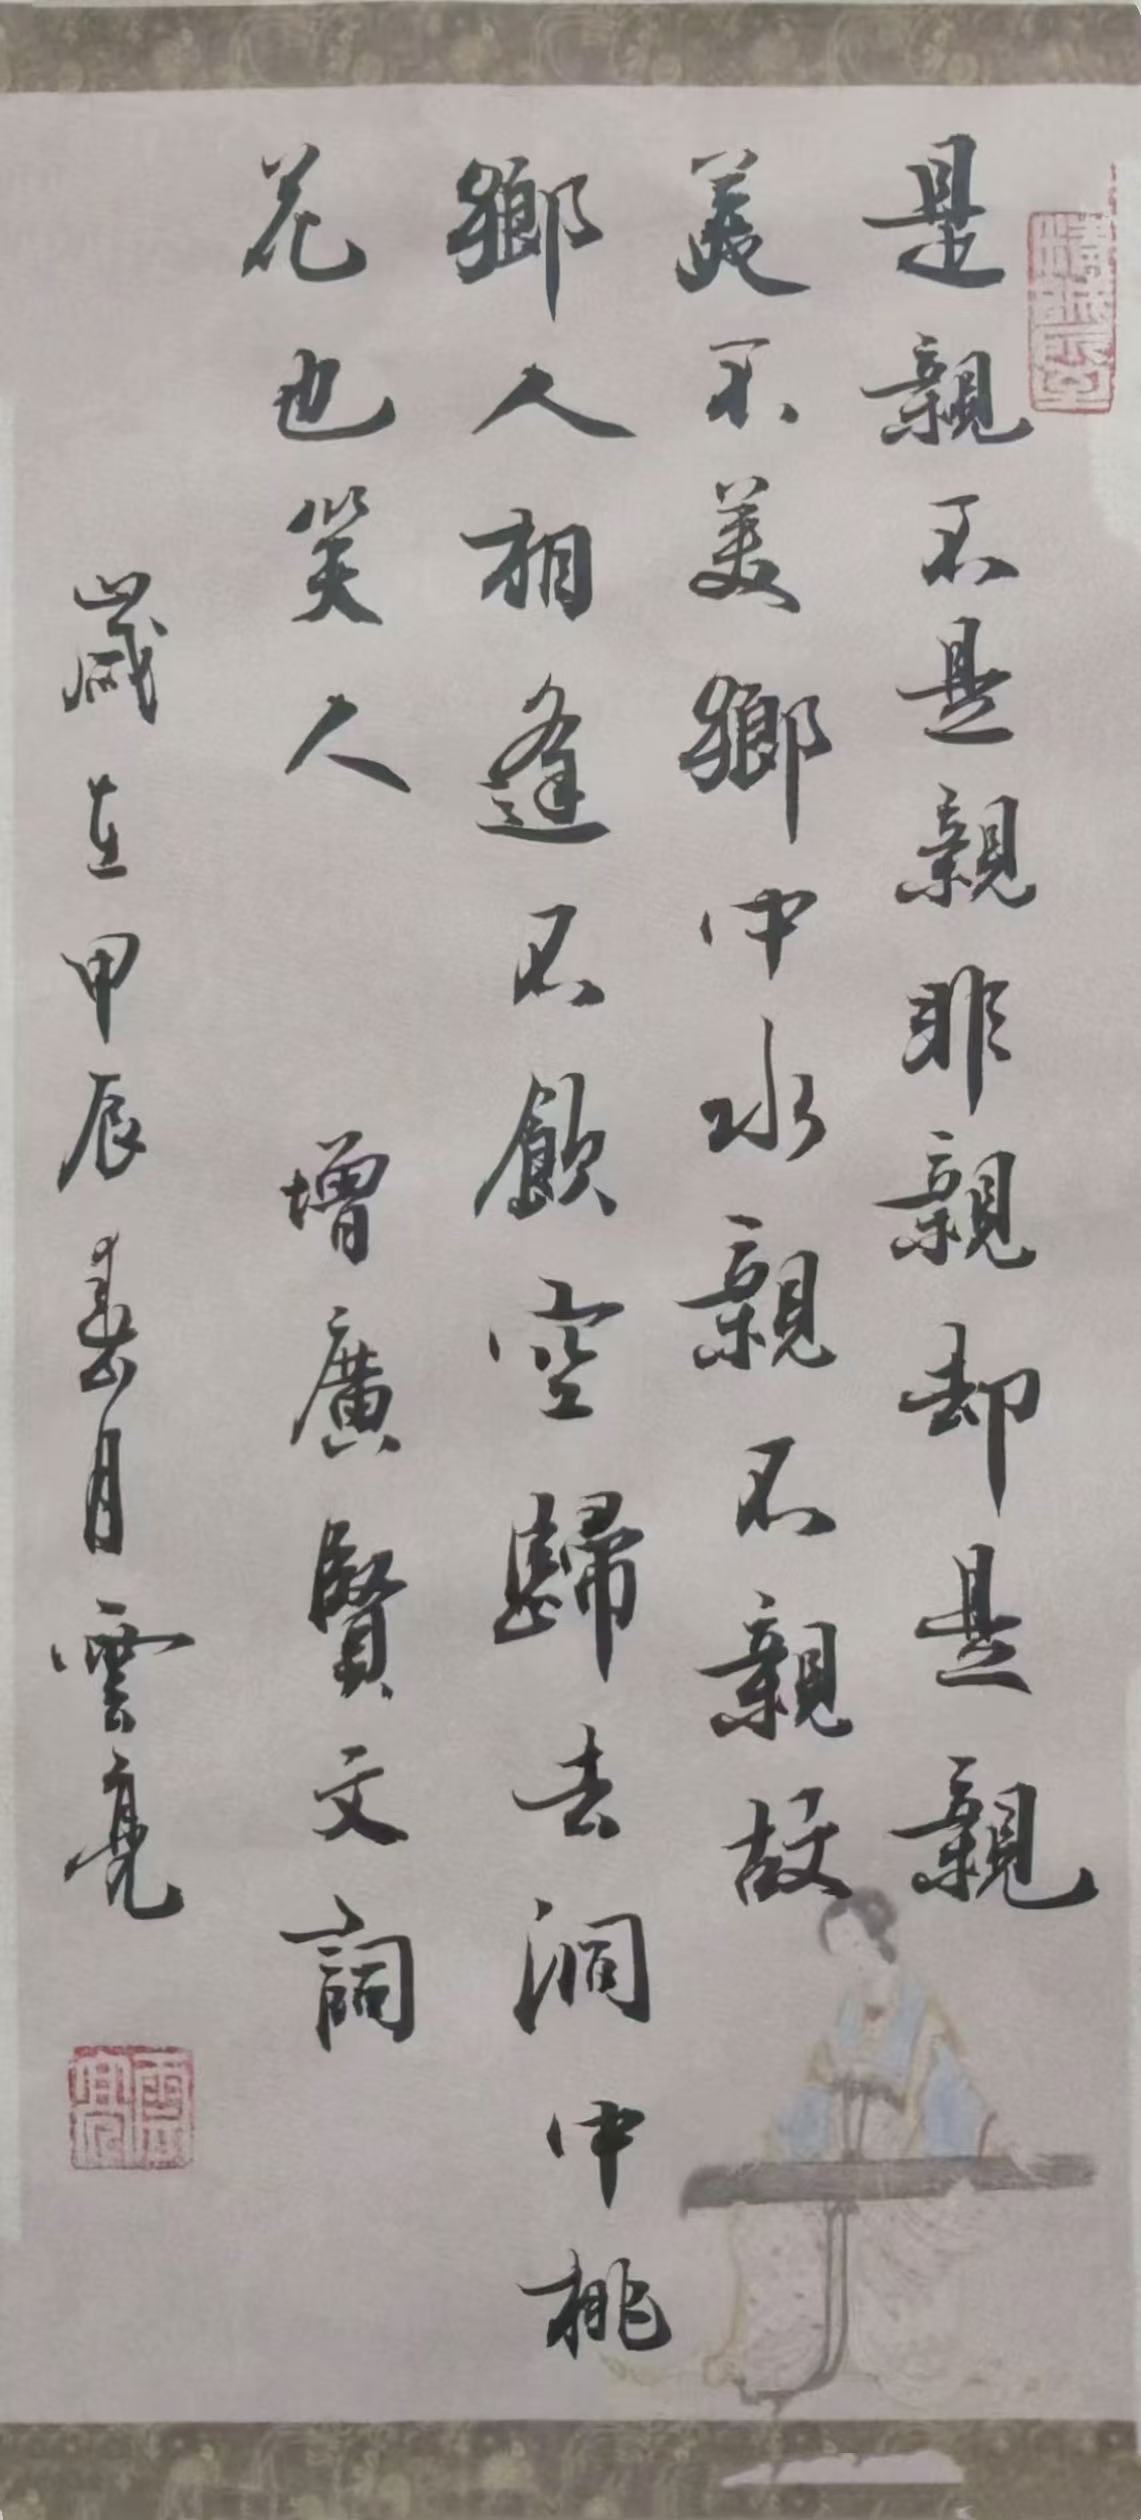 是親不是親非親却是親
美不美鄉中水親不親故
鄉人相逢不飲空歸去洞中桃
花也笑人
增廣賢文詞
歲在甲辰春月雲亮
雲亮